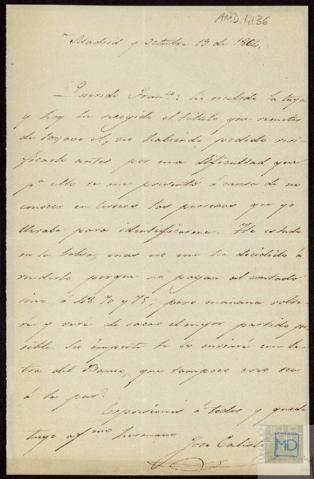 AMD.1,136
Madrid y Octubre 13 de 1864.
Querido Fran.co: he recibido la tuya
y hoy he recogido el titulo que remites
de no habiendo podido veri-
ficarlo antes por una dificultad que
p.a ello se me presentó a causa de no
conocer en las personas que yo
llevaba para identificarme. He estado
en la bolsa, mas no me he decidido á
venderlo porque no pagan al contado
sino á 48.70 y 75; pero mañana volve-
ré y vere de sacar el mejor partido po-
sible. Su importe te lo enviaré en le-
tra del Banco, que tampoco creo sea
á la par.
Expresiones á todos y queda
tuyo af.mo hermano
José Calisto
MD